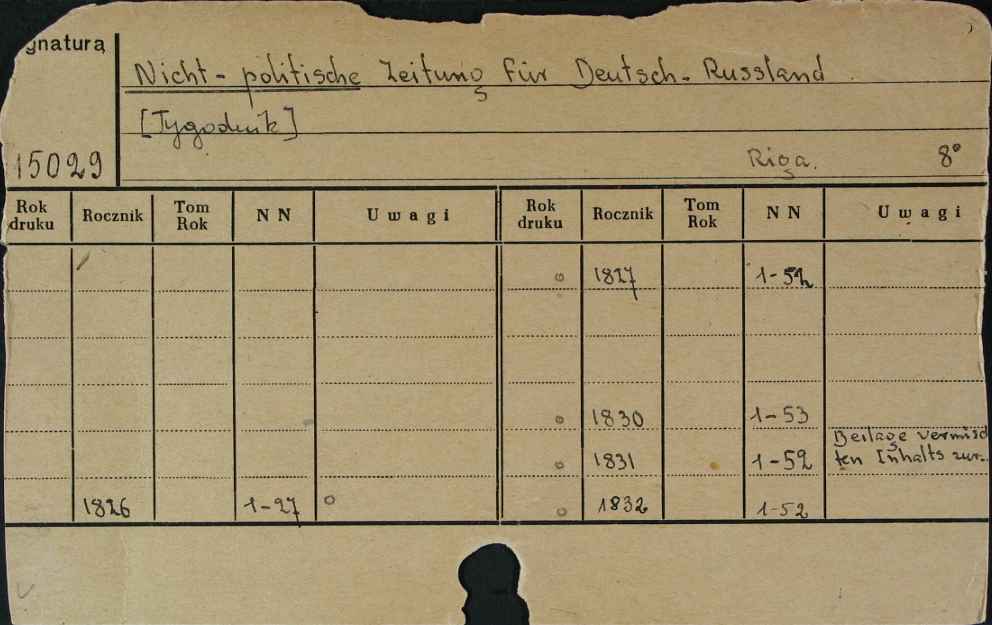 Signatura
Nicht-politische Zeitung für Deutsch-Russland
[Tygodnik]
15029
Riga. 8°
Rok druku Rocznik Tom Rok NN Uwagi Rok druku Rocznik Tom Rok NN Uwagi
1827 1-52
1830 1-53
Beilage vermisch
1831 1-52 ten Inhalts zur..
1826 1-27 1832 1-52